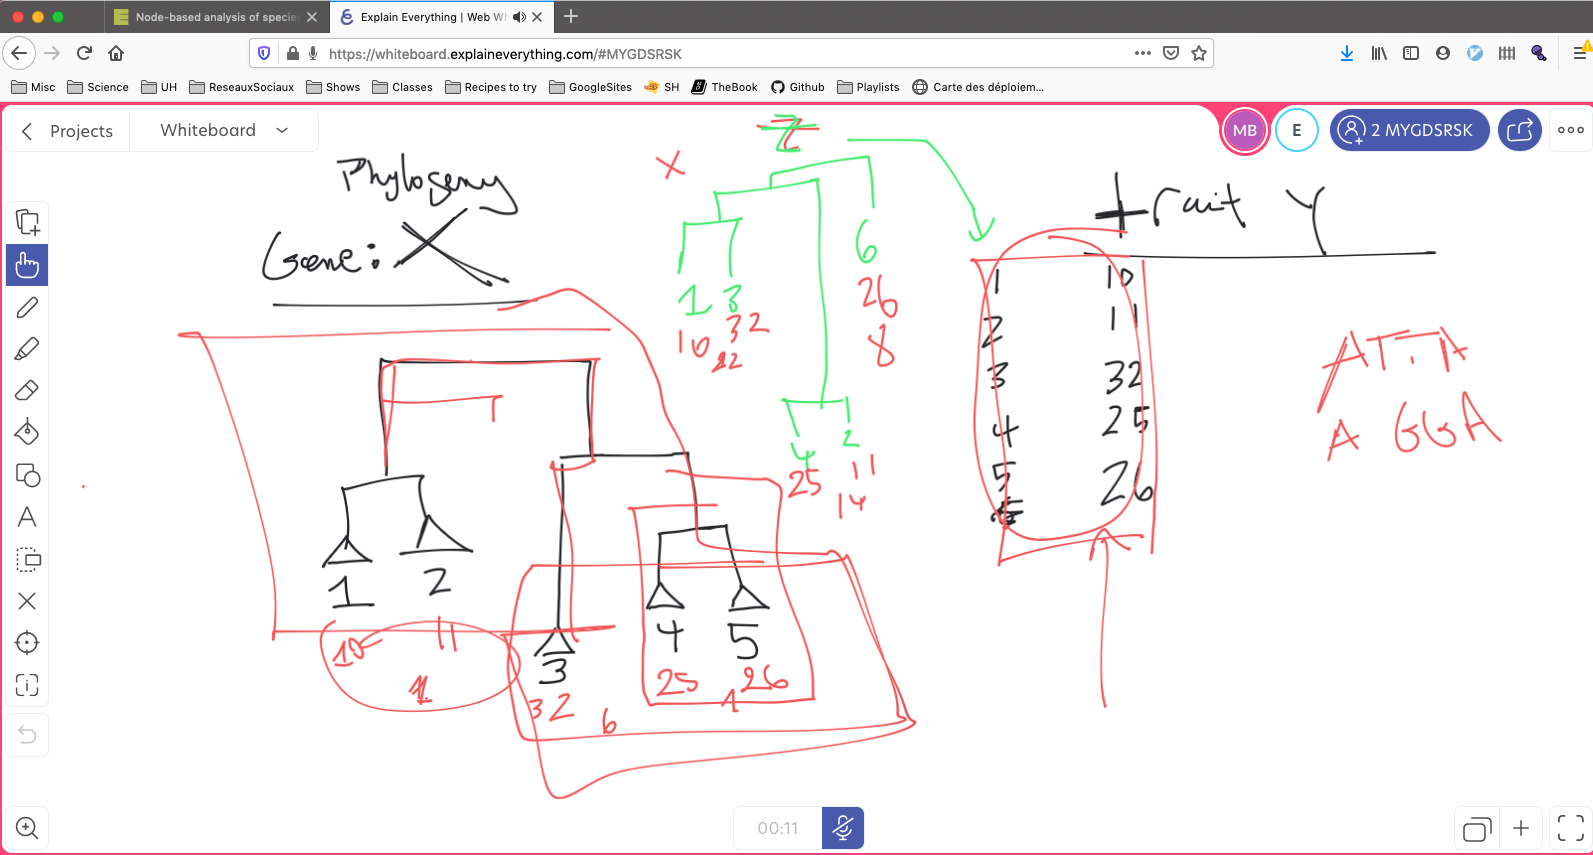 Node-based analysis of specie
Explain Everything | Web W
https://whiteboard.explaineverything.com/#MYGDSRSK
Misc Science UH ReseauxSociaux Shows Classes Recipes to try GoogleSites SH TheBook Github Playlists Carte des déploiem...
Projects Whiteboard
MB E 2 MYGDSRSK
Phylogeny
Gene: X
X
Z
1 3
10 32
22
6
26
8
4 2
25 11
14
trait Y
1 10
2 11
3 32
4 25
5 26
ATTA
A GGA
1 2
10 11
3
32
6
4 5
25 26
1
00:11